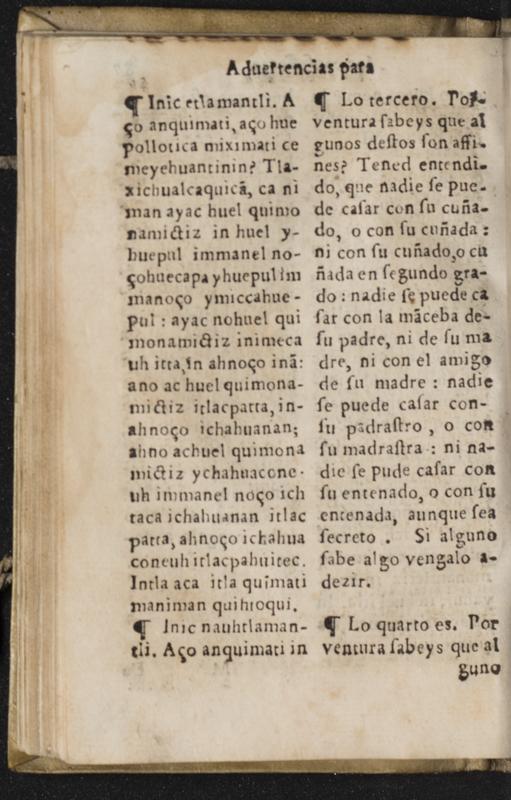 Aduertencias para
¶ Inic etlamantli. A
ço anquimati, aço hue
pollotica miximati ce
meyehuantinin? Tla-
xichualcaquicã, ca ni
man ayac huel quimo
namictiz in huel y-
huepul immanel no-
çohuecapa yhuepul im
manoço ymiccahue-
pul : ayac nohuel qui
monamictiz inimeca
uh itta, in ahnoço inã:
ano ac huel quimona-
mictiz itlacpatta, in-
ahnoço ichahuanan;
ahno achuel quimona
mictiz ychahuacone-
uh immanel noço ich
taca ichahuanan itlac
patta, ahnoço ichahua
coneuh itlacpahuitec.
Intla aca itla quimati
maniman quihtoqui.
¶ Inic nauhtlaman-
tli. Aço anquimati in
¶ Lo tercero. Por-
ventura sabeys que al
gunos destos son affi-
nes? Tened entendi-
do, que nadie se pue-
de casar con su cuña-
do, o con su cuñada :
ni con su cuñado, o cu
ñada en segundo gra-
do : nadie se puede ca
sar con la mãceba de-
su padre, ni de su ma
dre, ni con el amigo
de su madre : nadie
se puede casar con-
su padrastro , o con
su madrastra : ni na-
die se pude casar con
su entenado, o con su
entenada, aunque sea
secreto . Si alguno
sabe algo vengalo a-
dezir.
¶ Lo quarto es. Por
ventura sabeys que al
guno